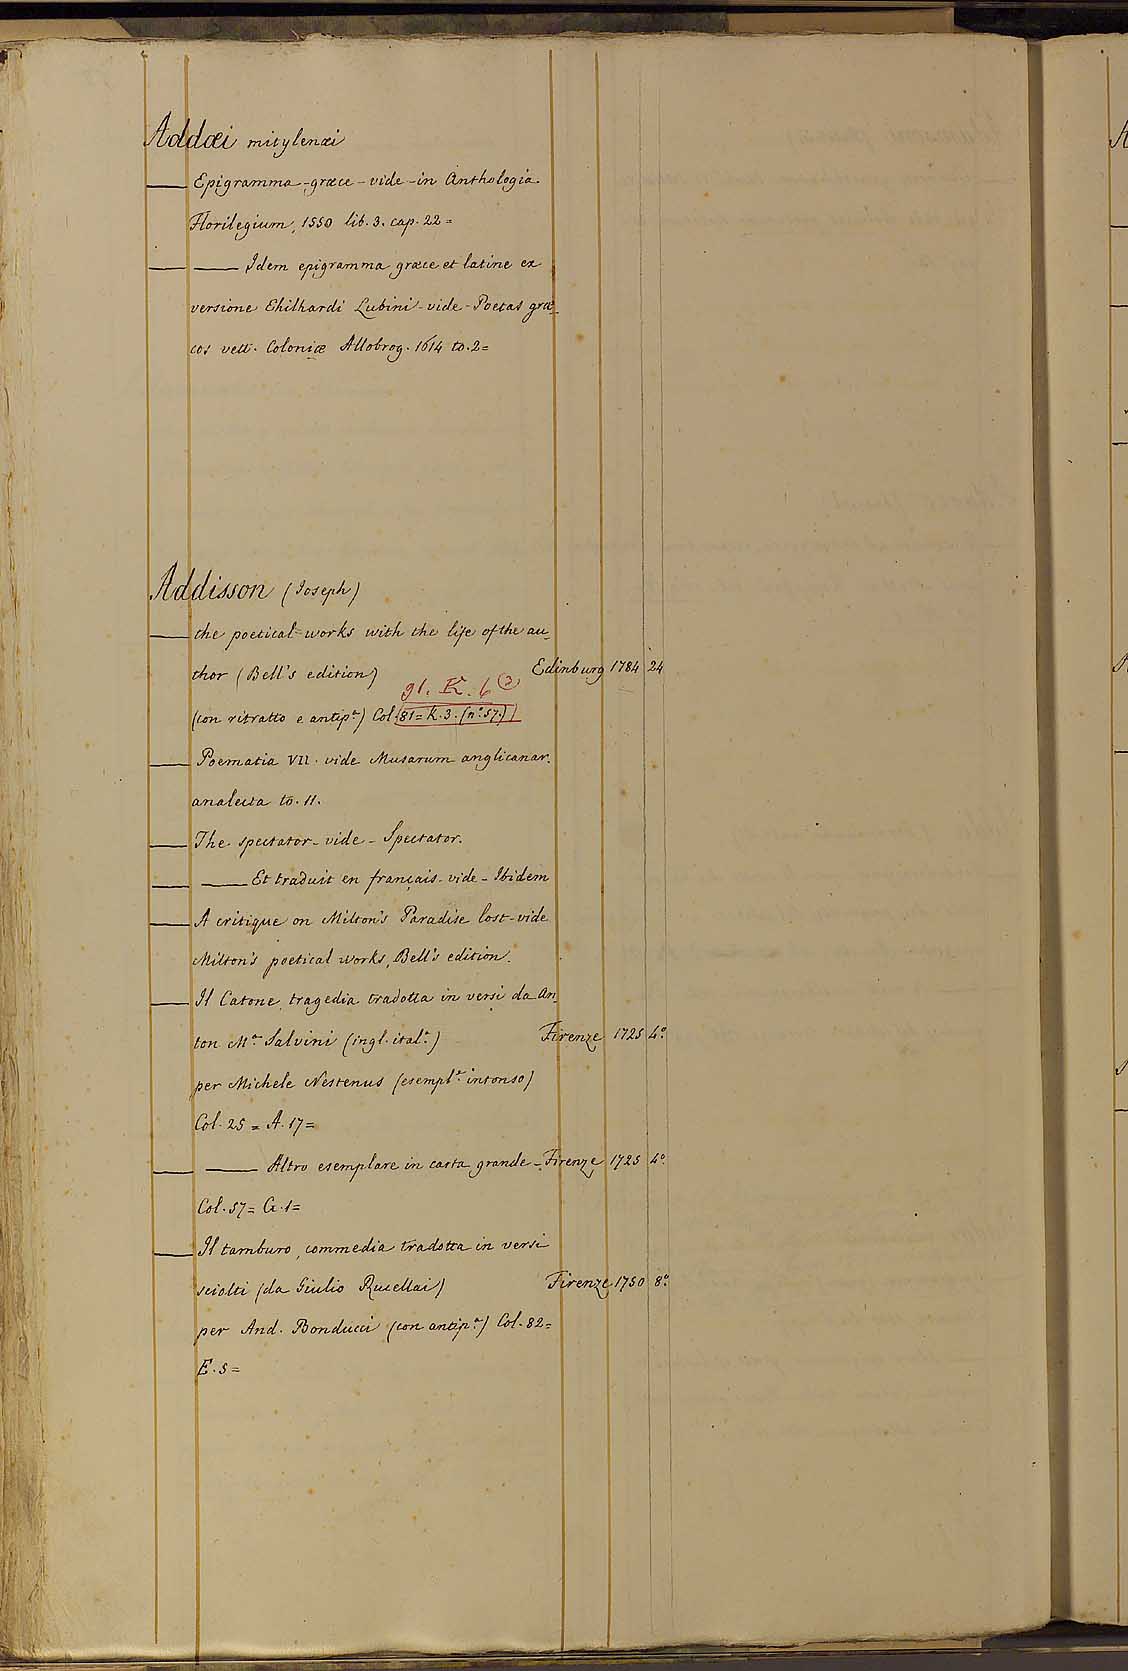 Addæi mitylenæi
Epigramma - græce - vide - in Anthologia.
Florilegium, 1550 lib. 3. cap. 22 =
Idem epigramma græce et latine ex
versione Ehilhardi Lubini - vide - Poetas græ-
cos vett. Coloniæ Allobrog. 1614 to. 2 =
Addisson (Joseph)
the poetical works with the life of the au-
thor (Bell's edition) Edinburg 1784 24
91. K. 6 (2)
(con ritratto e antip.ª) Col. 81 = K. 3. (nº. 57.)
Poematia VII. vide Musarum anglicanar.
analecta to. II.
The spectator - vide - Spectator.
Et traduit en français - vide - Ibidem
A critique on Milton's Paradise lost - vide
Milton's poetical works, Bell's edition.
Il Catone, tragedia tradotta in versi da An-
ton Mª. Salvini (ingl. ital.º) Firenze 1725 4º.
per Michele Nestenus (esempl.º intonso)
Col. 25 = A. 17 =
Altro esemplare in carta grande - Firenze 1725 4º.
Col. 57 = G. 1 =
Il tamburo, commedia tradotta in versi
sciolti (da Giulio Rucellai) Firenze 1750 8º.
per And. Bonducci (con antip.ª) Col. 82 =
E. 5 =